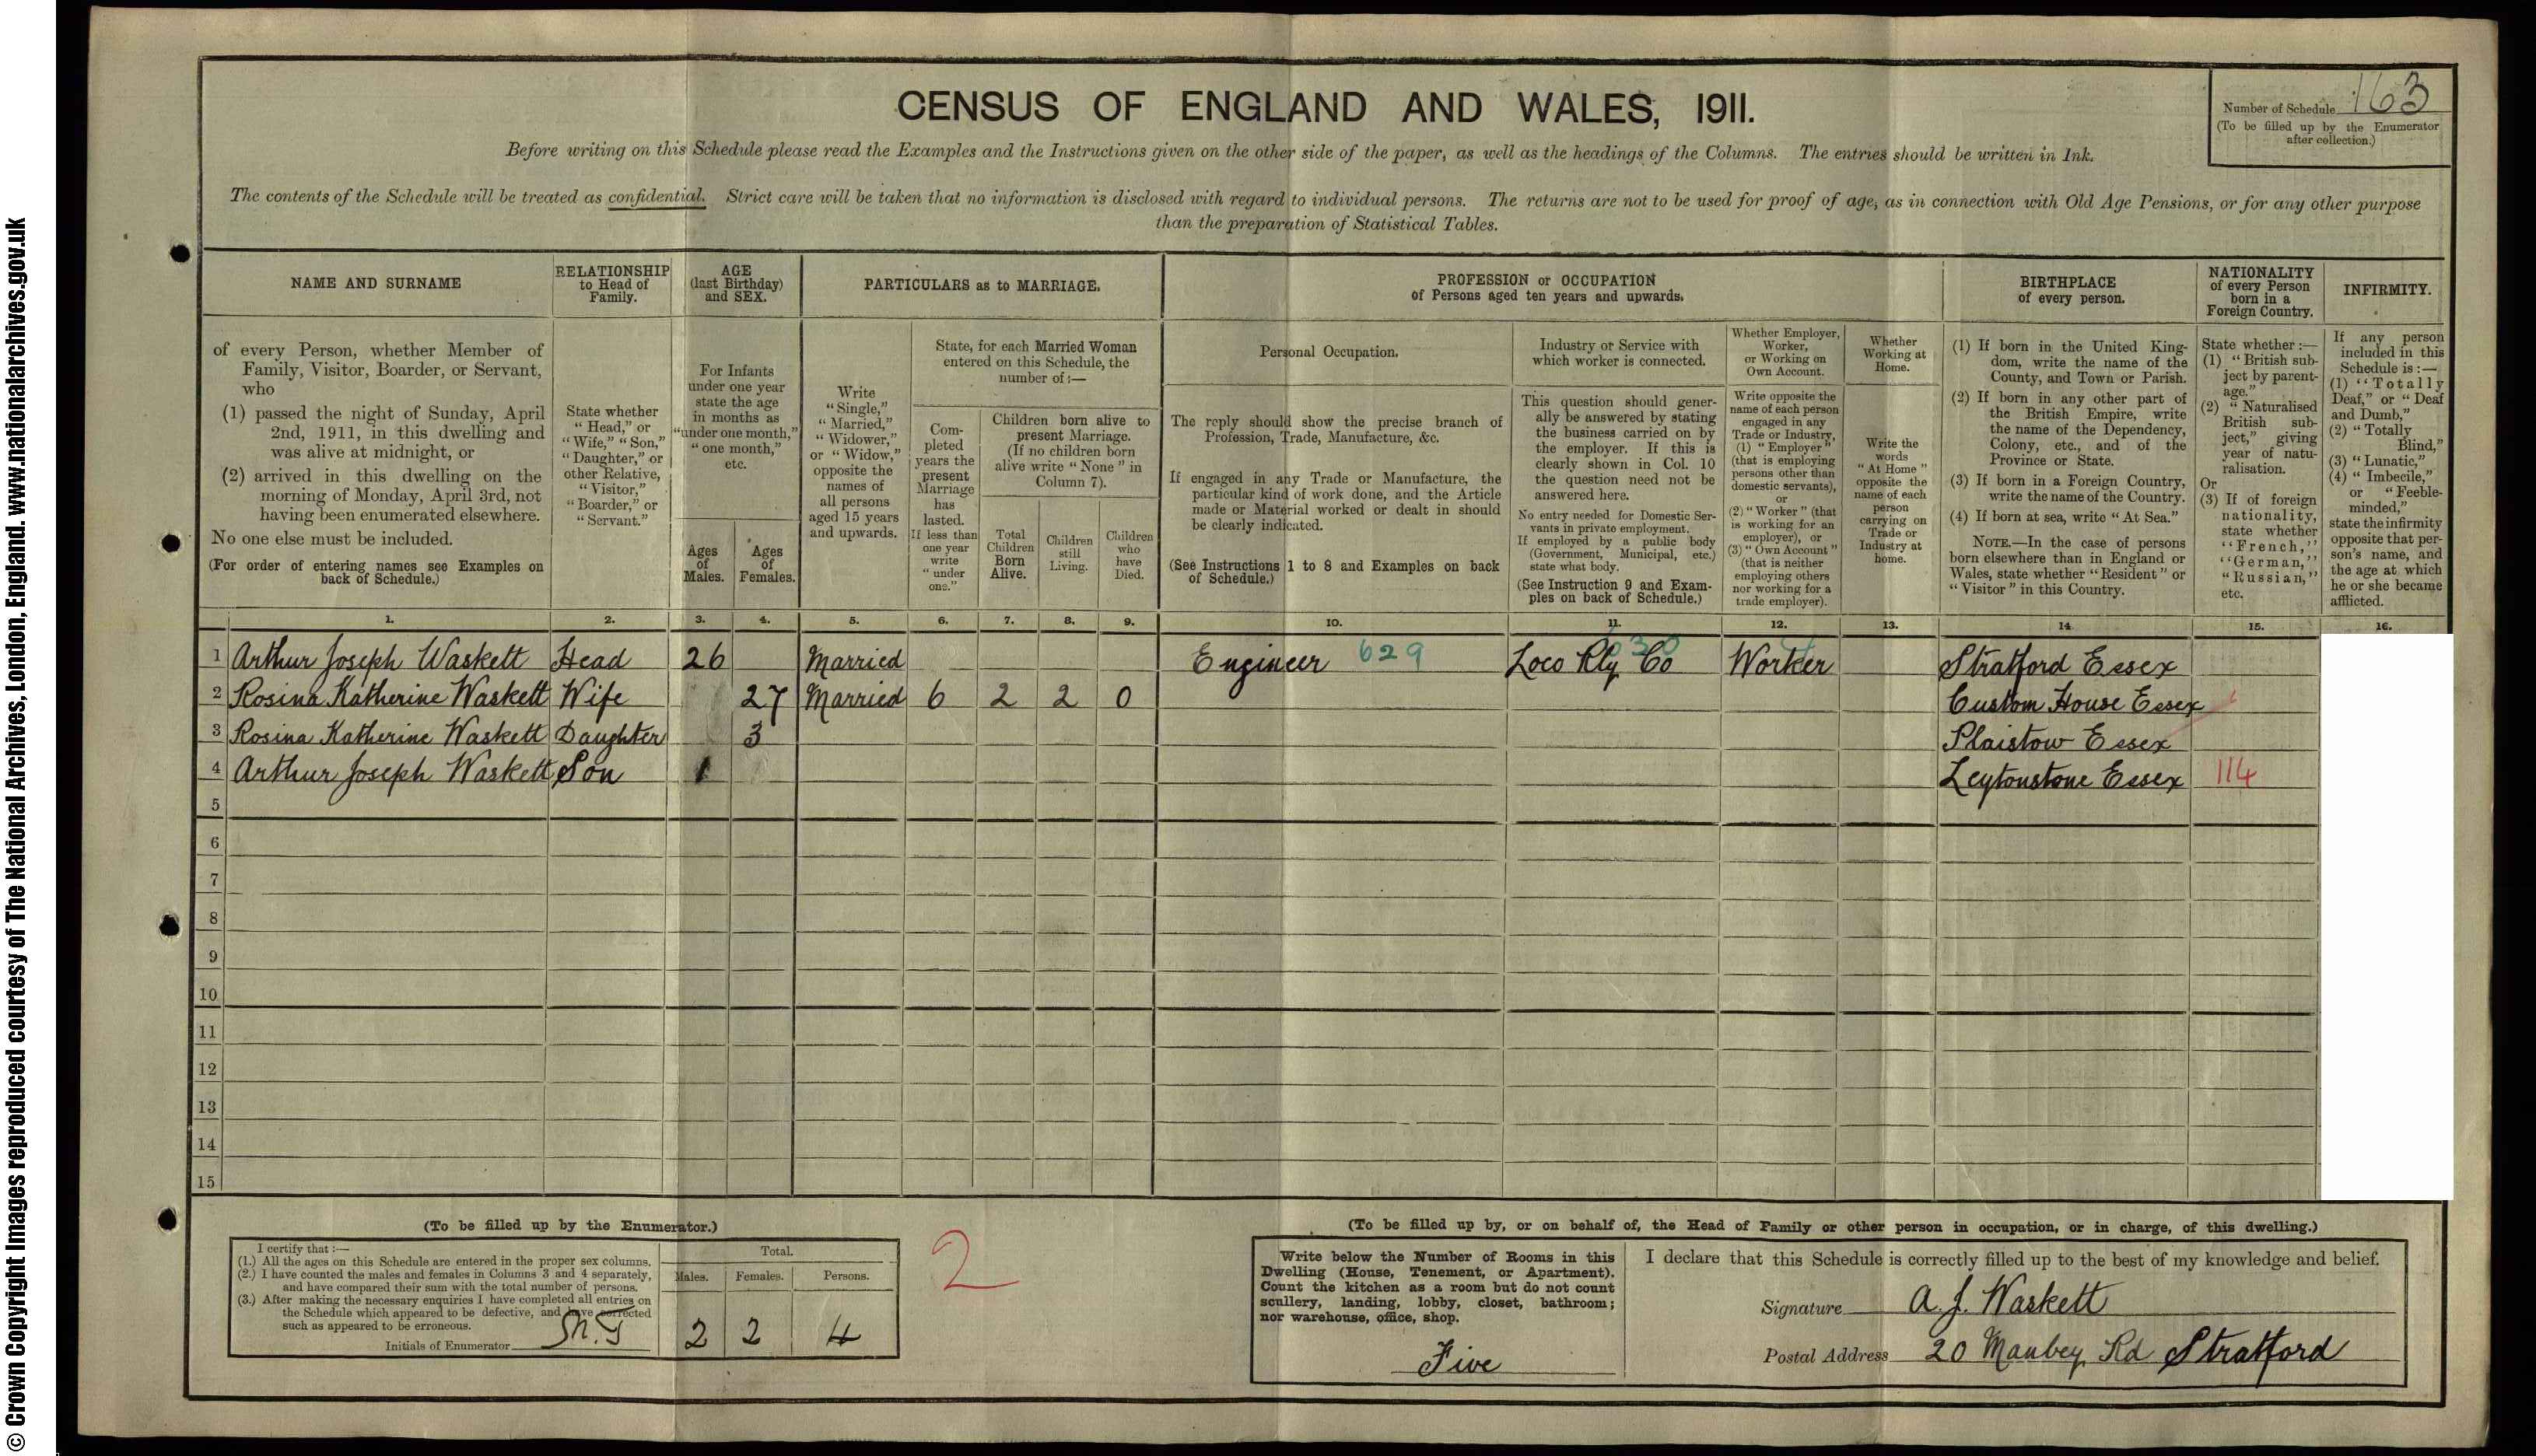 © Crown Copyright Images reproduced courtesy of The National Archives, London, England. www.nationalarchives.gov.uk
CENSUS OF ENGLAND AND WALES, 1911.
Number of Schedule 163
(To be filled up by the Enumerator
after collection.)
Before writing on this Schedule please read the Examples and the Instructions given on the other side of the paper, as well as the headings of the Columns. The entries should be written in Ink.
The contents of the Schedule will be treated as confidential. Strict care will be taken that no information is disclosed with regard to individual persons. The returns are not to be used for proof of age, as in connection with Old Age Pensions, or for any other purpose
than the preparation of Statistical Tables.
NAME AND SURNAME
of every Person, whether Member of
Family, Visitor, Boarder, or Servant,
who
(1) passed the night of Sunday, April
2nd, 1911, in this dwelling and
was alive at midnight, or
(2) arrived in this dwelling on the
morning of Monday, April 3rd, not
having been enumerated elsewhere.
No one else must be included.
(For order of entering names see Examples on
back of Schedule.)
RELATIONSHIP
to Head of
Family.
State whether
"Head," or
"Wife," "Son,"
"Daughter," or
other Relative,
"Visitor,"
"Boarder," or
"Servant."
AGE
(last Birthday)
and SEX.
For Infants
under one year
state the age
in months as
"under one month,"
"one month,"
etc.
Ages
of
Males.
Ages
of
Females.
PARTICULARS as to MARRIAGE.
Write
"Single,"
"Married,"
"Widower,"
or "Widow,"
opposite the
names of
all persons
aged 15 years
and upwards.
State, for each Married Woman
entered on this Schedule, the
number of :—
Com-
pleted
years the
present
Marriage
has
lasted.
If less than
one year
write
"under
one."
Children born alive to
present Marriage.
(If no children born
alive write "None" in
Column 7).
Total
Children
Born
Alive.
Children
still
Living.
Children
who
have
Died.
PROFESSION or OCCUPATION
of Persons aged ten years and upwards.
Personal Occupation.
The reply should show the precise branch of
Profession, Trade, Manufacture, &c.
If engaged in any Trade or Manufacture, the
particular kind of work done, and the Article
made or Material worked or dealt in should
be clearly indicated.
(See Instructions 1 to 8 and Examples on back
of Schedule.)
Industry or Service with
which worker is connected.
This question should gener-
ally be answered by stating
the business carried on by
the employer. If this is
clearly shown in Col. 10
the question need not be
answered here.
No entry needed for Domestic Ser-
vants in private employment.
If employed by a public body
(Government, Municipal, etc.)
state what body.
(See Instruction 9 and Exam-
ples on back of Schedule.)
Whether Employer,
Worker,
or Working on
Own Account.
Write opposite the
name of each person
engaged in any
Trade or Industry,
(1) "Employer"
(that is employing
persons other than
domestic servants),
or
(2) "Worker" (that
is working for an
employer), or
(3) "Own Account"
(that is neither
employing others
nor working for a
trade employer).
Whether
Working at
Home.
Write the
words
"At Home"
opposite the
name of each
person
carrying on
Trade or
Industry at
home.
BIRTHPLACE
of every person.
(1) If born in the United King-
dom, write the name of the
County, and Town or Parish.
(2) If born in any other part of
the British Empire, write
the name of the Dependency,
Colony, etc., and of the
Province or State.
(3) If born in a Foreign Country,
write the name of the Country.
(4) If born at sea, write "At Sea."
NOTE.—In the case of persons
born elsewhere than in England or
Wales, state whether "Resident" or
"Visitor" in this Country.
NATIONALITY
of every Person
born in a
Foreign Country.
State whether :—
(1) "British sub-
ject by parent-
age."
(2) "Naturalised
British sub-
ject," giving
year of natu-
ralisation.
Or
(3) If of foreign
nationality,
state whether
"French,"
"German,"
"Russian,"
etc.
INFIRMITY.
If any person
included in this
Schedule is :—
(1) "Totally
Deaf," or "Deaf
and Dumb,"
(2) "Totally
Blind,"
(3) "Lunatic,"
(4) "Imbecile,"
or "Feeble-
minded,"
state the infirmity
opposite that per-
son's name, and
the age at which
he or she became
afflicted.
1. 2. 3. 4. 5. 6. 7. 8. 9. 10. 11. 12. 13. 14 15. 16.
1 Arthur Joseph Waskett Head 26 Married Engineer 629 Loco Rly Co 630 Worker Stratford Essex
2 Rosina Katherine Waskett Wife 27 Married 6 2 2 0 Custom House Essex
3 Rosina Katherine Waskett Daughter 3 Plaistow Essex
4 Arthur Joseph Waskett Son 1 Leytonstone Essex 114
5
6
7
8
9
10
11
12
13
14
15
(To be filled up by the Enumerator.)
I certify that :—
(1.) All the ages on this Schedule are entered in the proper sex columns.
(2.) I have counted the males and females in Columns 3 and 4 separately,
and have compared their sum with the total number of persons.
(3.) After making the necessary enquiries I have completed all entries on
the Schedule which appeared to be defective, and have corrected
such as appeared to be erroneous.
Initials of Enumerator
Total.
Males. Females. Persons.
2 2 4
2
(To be filled up by, or on behalf of, the Head of Family or other person in occupation, or in charge, of this dwelling.)
Write below the Number of Rooms in this
Dwelling (House, Tenement, or Apartment).
Count the kitchen as a room but do not count
scullery, landing, lobby, closet, bathroom;
nor warehouse, office, shop.
Five
I declare that this Schedule is correctly filled up to the best of my knowledge and belief.
Signature A. J. Waskett
Postal Address 20 Manbey Rd Stratford